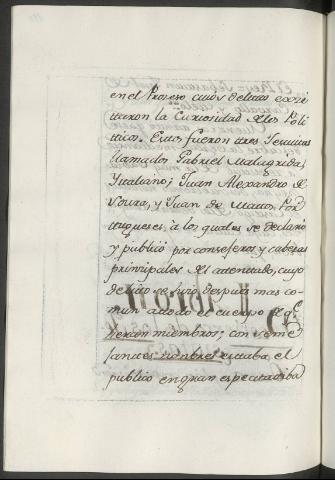 en el Proseso cuios delitos exxi
taron la Curiosidad de los Poli
ticos. Estos fueron tres Jesuitas
llamados Gabriel Malagrida,
Ytaliano; Juan Alexandro de
Sousa, y Juan de Matos, Por
tugueses, à los quales se declaró
y publicó por consejeros y cabezas
principales del atentado, cuyo
delito se hizo despues mas co
mun a todo el cuerpo de qe.
heran miembros; con seme
jantes nombres estaba el
publico en gran espectatiba